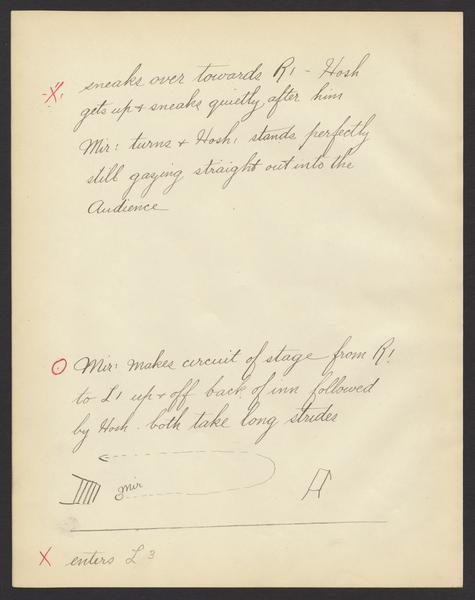 "X, sneaks over towards R1 - Hosh
gets up + sneaks quietly after him
Mir: turns + Hosh: stands perfectly
still gazing straight out into the
Audience
Mir: makes circuit of stage from R1
to L1 up + off back of inn followed
by Hosh - both take long strides
Mir
X enters L 3